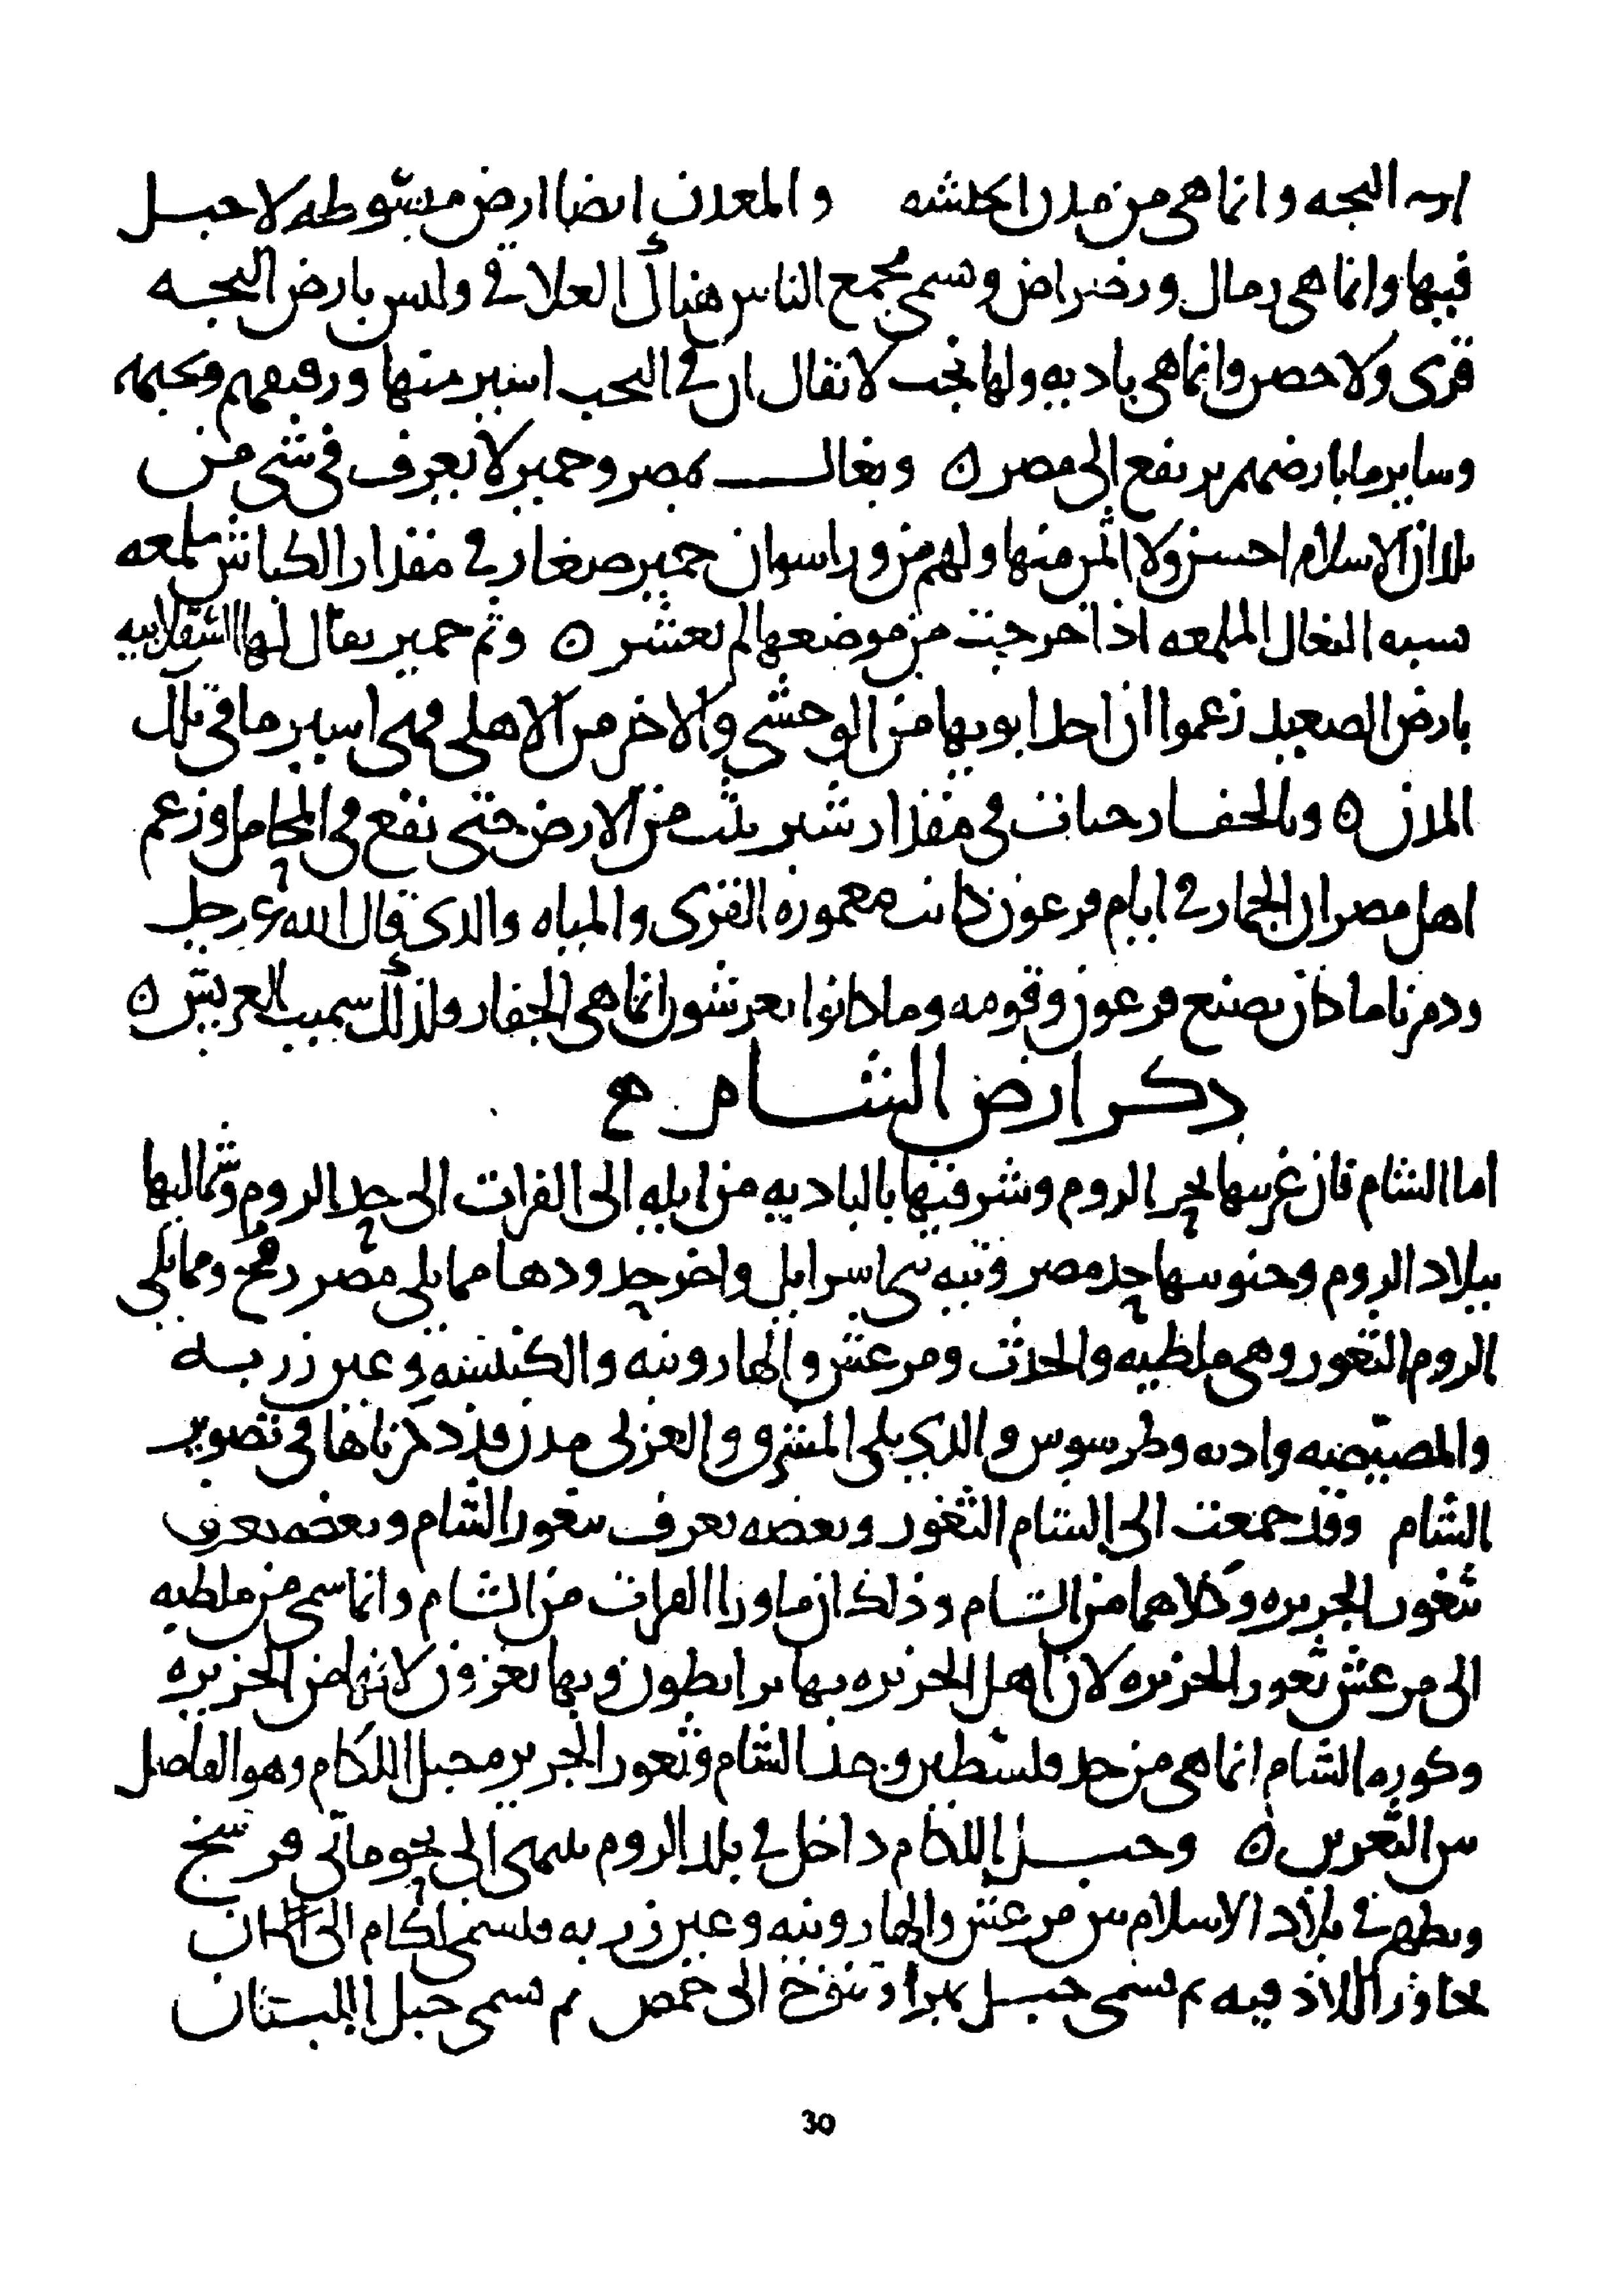 ارض البجه وانما هى من مدن الحبشه والمعدن ايضا ارض مبسوطه لا جبل
فيها وانما هى رمال ورضراض ويسمى مجمع الناس هناك العلاقى وليس بارض البجه
قرى ولا خصب وانما هى باديه ولها نجب لا يقال ان فى النجب اسير منها ورقيقهم ونجبهم
وساير ما بارضهم يرتفع الى مصر ه وبغال بمصر وحمير لا يعرف فى شى من
بلدان الاسلام احسن ولا اثمن منها ولهم من ورا اسوان حمير صغار فى مقدار الكباش ملمعه
يشبه البغال الملمعه اذا اخرجت من موضعها لم تعش ه وثم حمير يقال لها السملاقيه
بارض الصعيد زعموا ان احد ابويها من الوحشى والاخر من الاهلى فهى اسير ما فى تلك
المدن ه وبالجفار حيات فى مقدار شبر يثب من الارض حتى يقع فى المحامل وزعم
اهل مصر ان الجفار فى ايام فرعون كانت معموره القرى والمياه والذى قال الله عز وجل
ودمرنا ما كان يصنع فرعون وقومه وما كانوا يعرشون انما هى الجفار ولذلك سميت العريش ه
ذكر ارض الشام
اما الشام فان غربيها بحر الروم وشرقيها بالباديه من ايله الى الفرات الى حد الروم وشماليها
ببلاد الروم وجنوبيها حد مصر وتيه بنى اسرايل واخر حدودها مما يلى مصر رفح ومما يلى
الروم الثغور وهى ملطيه والحدث ومرعش والهارونيه والكنيسه وعين زربه
والمصيصه وادنه وطرسوس والذى يلى المشرق والغربى مدن قد ذكرناها فى تصوير
الشام وقد جمعت الى الشام الثغور وبعضه يعرف بثغور الشام وبعضه يعرف
بثغور الجزيره وكلاهما من الشام وذلك ان ماورا الفرات من الشام وانما سمى من ملطيه
الى مرعش ثغور الجزيره لان اهل الجزيره بها يرابطون وبها يغزون لانها من الجزيره
وكوره الشام انما هى من حد فلسطين وحد الشام وثغور الجزيره جبل اللكام وهو الفاصل
بين الثغرين ه وجبل اللكام داخل فى بلد الروم ينتهى الى نحو مائتى فرسخ
ويظهر فى بلاد الاسلام بين مرعش والهارونيه وعين زربه فيسمى لكام الى ان
يجاوز اللاذقيه ثم يسمى جبل بهرا وتنوخ الى حمص ثم يسمى جبل لبنان
30